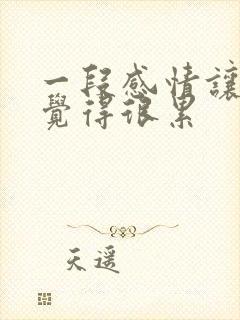 一段感情讓
覺得很累
天遥